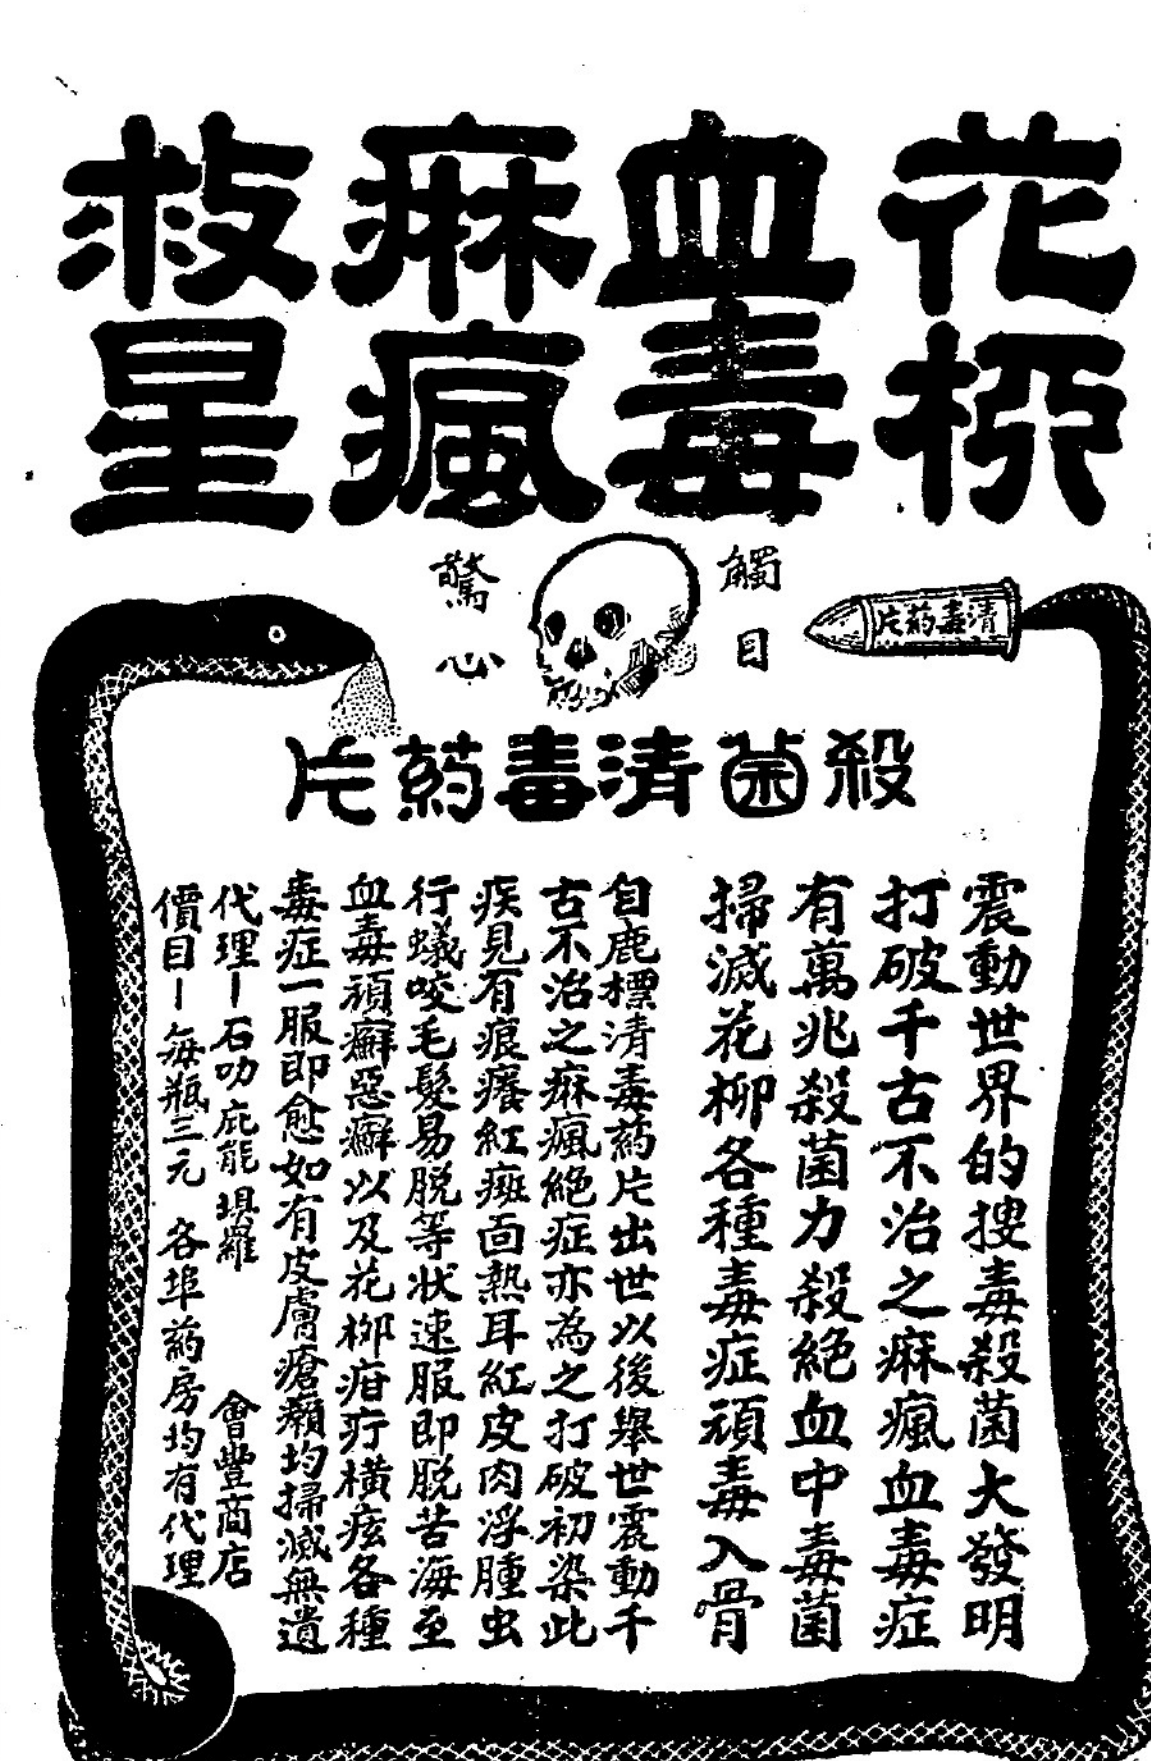 花柳
血毒
痳瘋
救星
觸目
驚心
清毒葯片
殺菌清毒葯片
震動世界的搜毒殺菌大發明
打破千古不治之痳瘋血毒症
有萬兆殺菌力殺絕血中毒菌
掃滅花柳各種毒症頑毒入骨
自鹿標清毒葯片出世以後舉世震動千
古不治之痳瘋絕症亦為之打破初染此
疾見有痕癢紅斑面熱耳紅皮肉浮腫虫
行蟻咬毛髮易脫等狀速服即脫苦海至
血毒頑癬惡癬以及花柳疳疔橫痃各種
毒症一服即愈如有皮膚瘡癩均掃滅無遺
代理—石叻庇能埧羅 會豐商店
價目—每瓶三元 各埠葯房均有代理